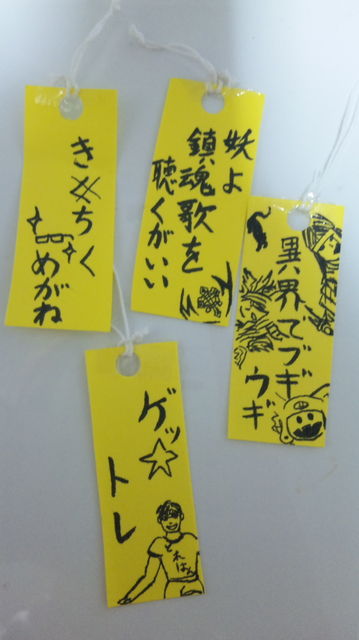 きちく
めがね
妖よ
鎮魂歌を
聴くがいい
異界でブギ
ウギ
ゲッ☆
トレ